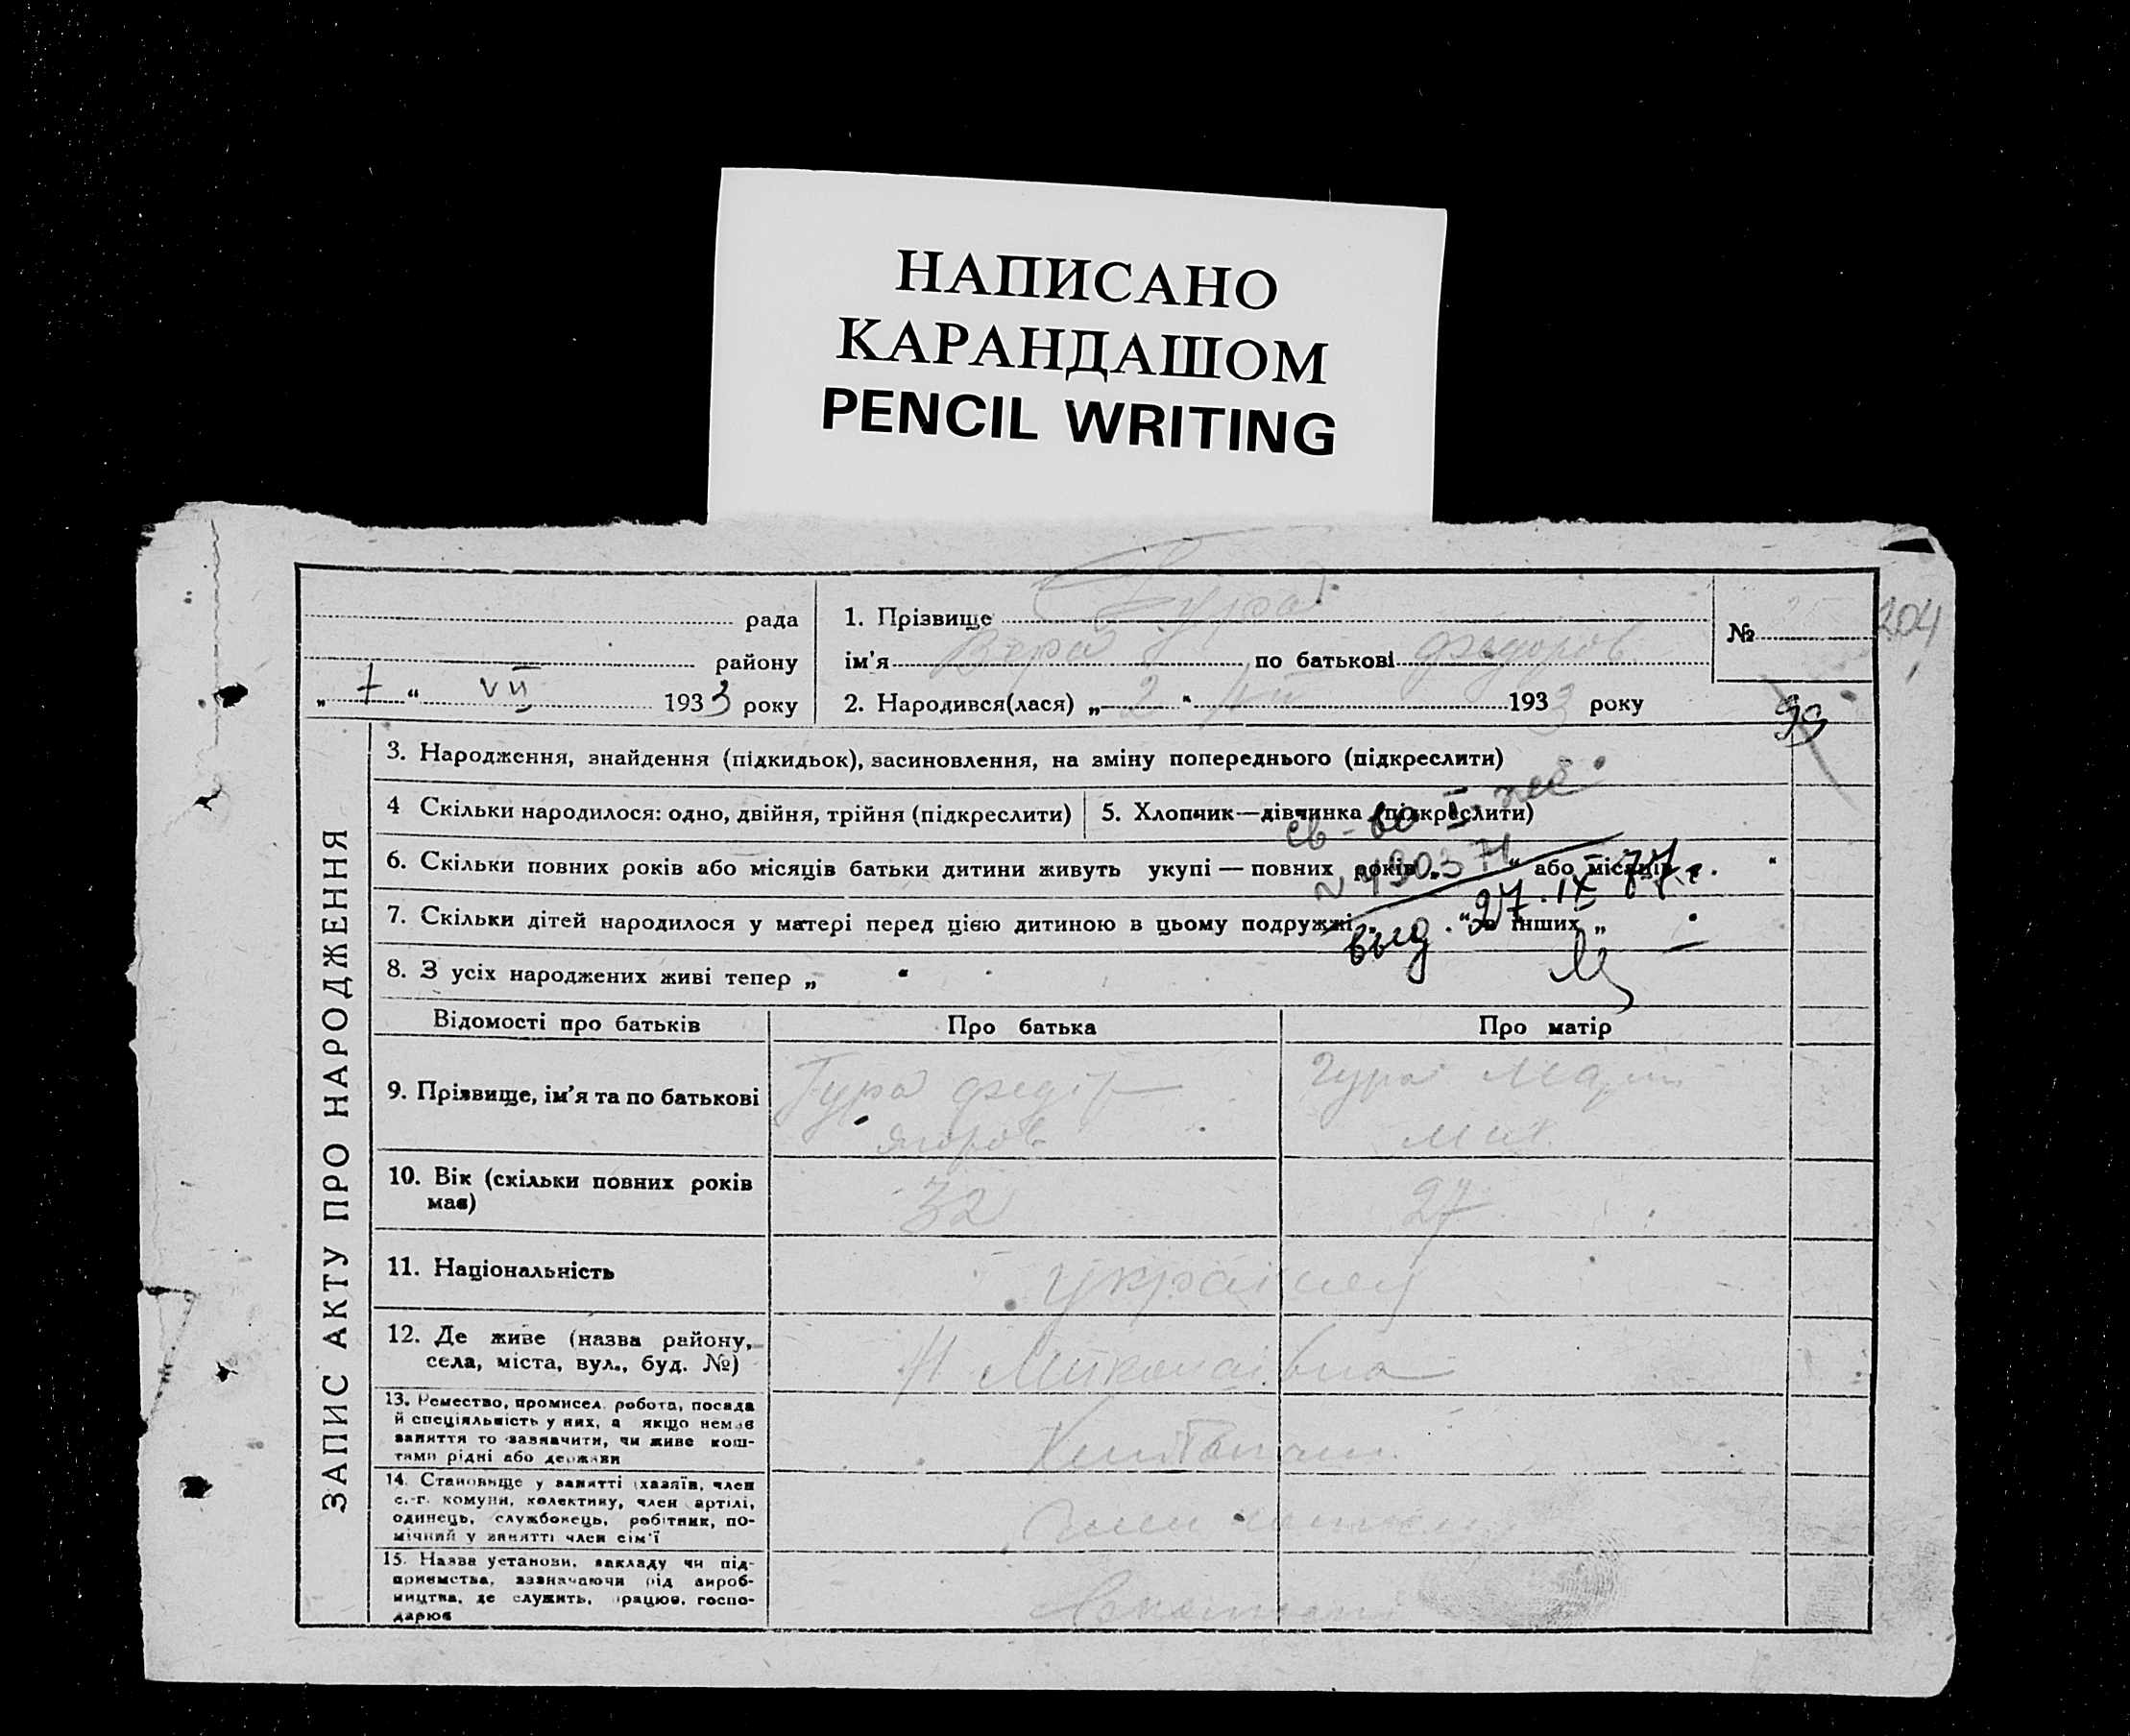 НАПИСАНО
КАРАНДАШОМ
PENCIL WRITING
ЗАПИС АКТУ ПРО НАРОДЖЕННЯ
рада
району
„ 7 “ VII 1933 року
1. Прізвище Гура
ім’я Вера по батькові Федоров
2. Народився(лася) „ 2 “ 1933 року
№
204
99
3. Народження, знайдення (підкидьок), засиновлення, на зміну попереднього (підкреслити)
4 Скільки народилося: одно, двійня, трійня (підкреслити)
5. Хлопчик—дівчинка (підкреслити)
6. Скільки повних років або місяців батьки дитини живуть укупі — повних років „ “ або місяців „ “
7. Скільки дітей народилося у матері перед цією дитиною в цьому подружжі „ “ в інших „
8. З усіх народжених живі тепер „ “
св-во I
выд. 27.IX 77 г.
Відомості про батьків
Про батька
Про матір
9. Прізвище, ім’я та по батькові
Гура Федір
Гура
10. Вік (скільки повних років
має)
32
27
11. Національність
12. Де живе (назва району,
села, міста, вул., буд. №)
Н Миколаівка
13. Ремество, промисел, робота, посада
й спеціяльність у них, а якщо немає
заняття то зазначити, чи живе кош-
тами рідні або держави
14. Становище у занятті (хазяїн, член
с.-г. комуни, колективу, член артілі,
одинець, службовець, робітник, по-
мічний у занятті член сім’ї
15. Назва установи, закладу чи під-
приємства, зазначаючи рід вироб-
ництва, де служить, працює, госпо-
дарює